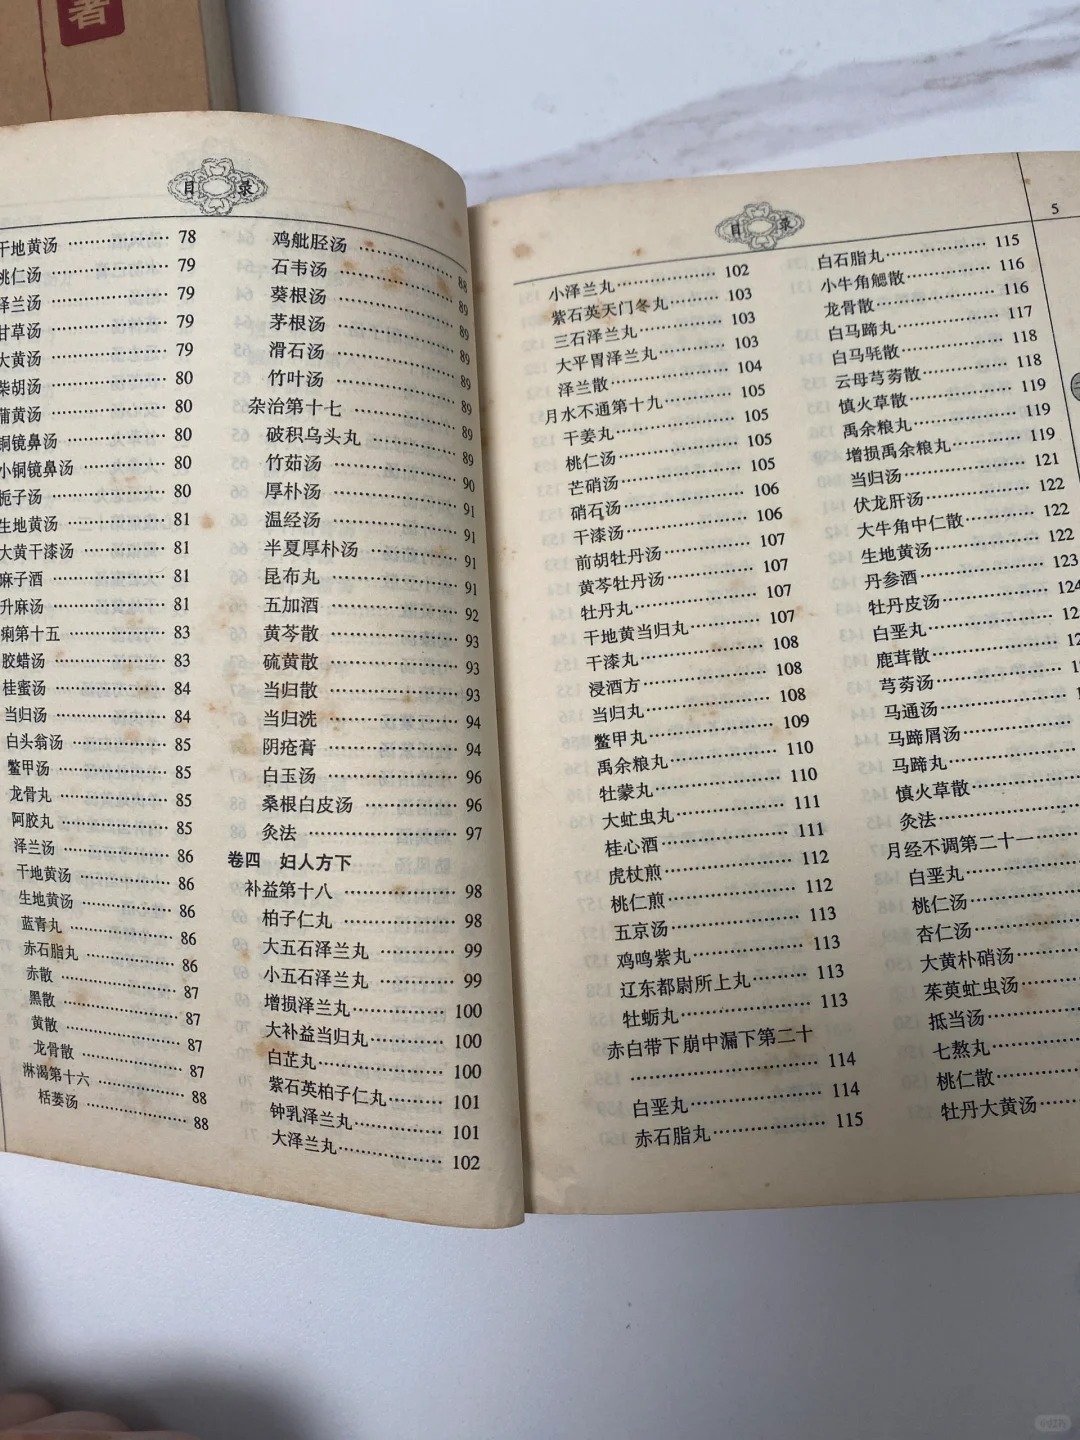 著
目录
干地黄汤 78
桃仁汤 79
泽兰汤 79
甘草汤 79
大黄汤 79
柴胡汤 80
蒲黄汤 80
铜镜鼻汤 80
小铜镜鼻汤 80
栀子汤 80
生地黄汤 81
大黄干漆汤 81
麻子酒 81
升麻汤 81
痢第十五 83
胶蜡汤 83
桂蜜汤 84
当归汤 84
白头翁汤 85
鳖甲汤 85
龙骨丸 85
阿胶丸 85
泽兰汤 86
干地黄汤 86
生地黄汤 86
蓝青丸 86
赤石脂丸 86
赤散 87
黑散 87
黄散 87
龙骨散 87
淋渴第十六 88
栝蒌汤 88
鸡肶胵汤 88
石韦汤 89
葵根汤 89
茅根汤 89
滑石汤 89
竹叶汤 89
杂治第十七 89
破积乌头丸 89
竹茹汤 90
厚朴汤 91
温经汤 91
半夏厚朴汤 91
昆布丸 91
五加酒 92
黄芩散 93
硫黄散 93
当归散 93
当归洗 94
阴疮膏 94
白玉汤 96
桑根白皮汤 96
灸法 97
卷四 妇人方下
补益第十八 98
柏子仁丸 98
大五石泽兰丸 99
小五石泽兰丸 99
增损泽兰丸 100
大补益当归丸 100
白芷丸 100
紫石英柏子仁丸 101
钟乳泽兰丸 101
大泽兰丸 102
目录
5
小泽兰丸 102
紫石英天门冬丸 103
三石泽兰丸 103
大平胃泽兰丸 103
泽兰散 104
月水不通第十九 105
干姜丸 105
桃仁汤 105
芒硝汤 105
硝石汤 106
干漆汤 106
前胡牡丹汤 107
黄芩牡丹汤 107
牡丹丸 107
干地黄当归丸 107
干漆丸 108
浸酒方 108
当归丸 108
鳖甲丸 109
禹余粮丸 110
牡蒙丸 110
大虻虫丸 111
桂心酒 111
虎杖煎 112
桃仁煎 112
五京汤 113
鸡鸣紫丸 113
辽东都尉所上丸 113
牡蛎丸 113
赤白带下崩中漏下第二十
114
白垩丸 114
赤石脂丸 115
白石脂丸 115
小牛角䚡散 116
龙骨散 116
白马蹄丸 117
白马毦散 118
云母芎䓖散 118
慎火草散 119
禹余粮丸 119
增损禹余粮丸 119
当归汤 121
伏龙肝汤 122
大牛角中仁散 122
生地黄汤 122
丹参酒 123
牡丹皮汤 124
白垩丸
鹿茸散
芎䓖汤
马通汤
马蹄屑汤
马蹄丸
慎火草散
灸法
月经不调第二十一
白垩丸
桃仁汤
杏仁汤
大黄朴硝汤
茱萸虻虫汤
抵当汤
七熬丸
桃仁散
牡丹大黄汤
小红书